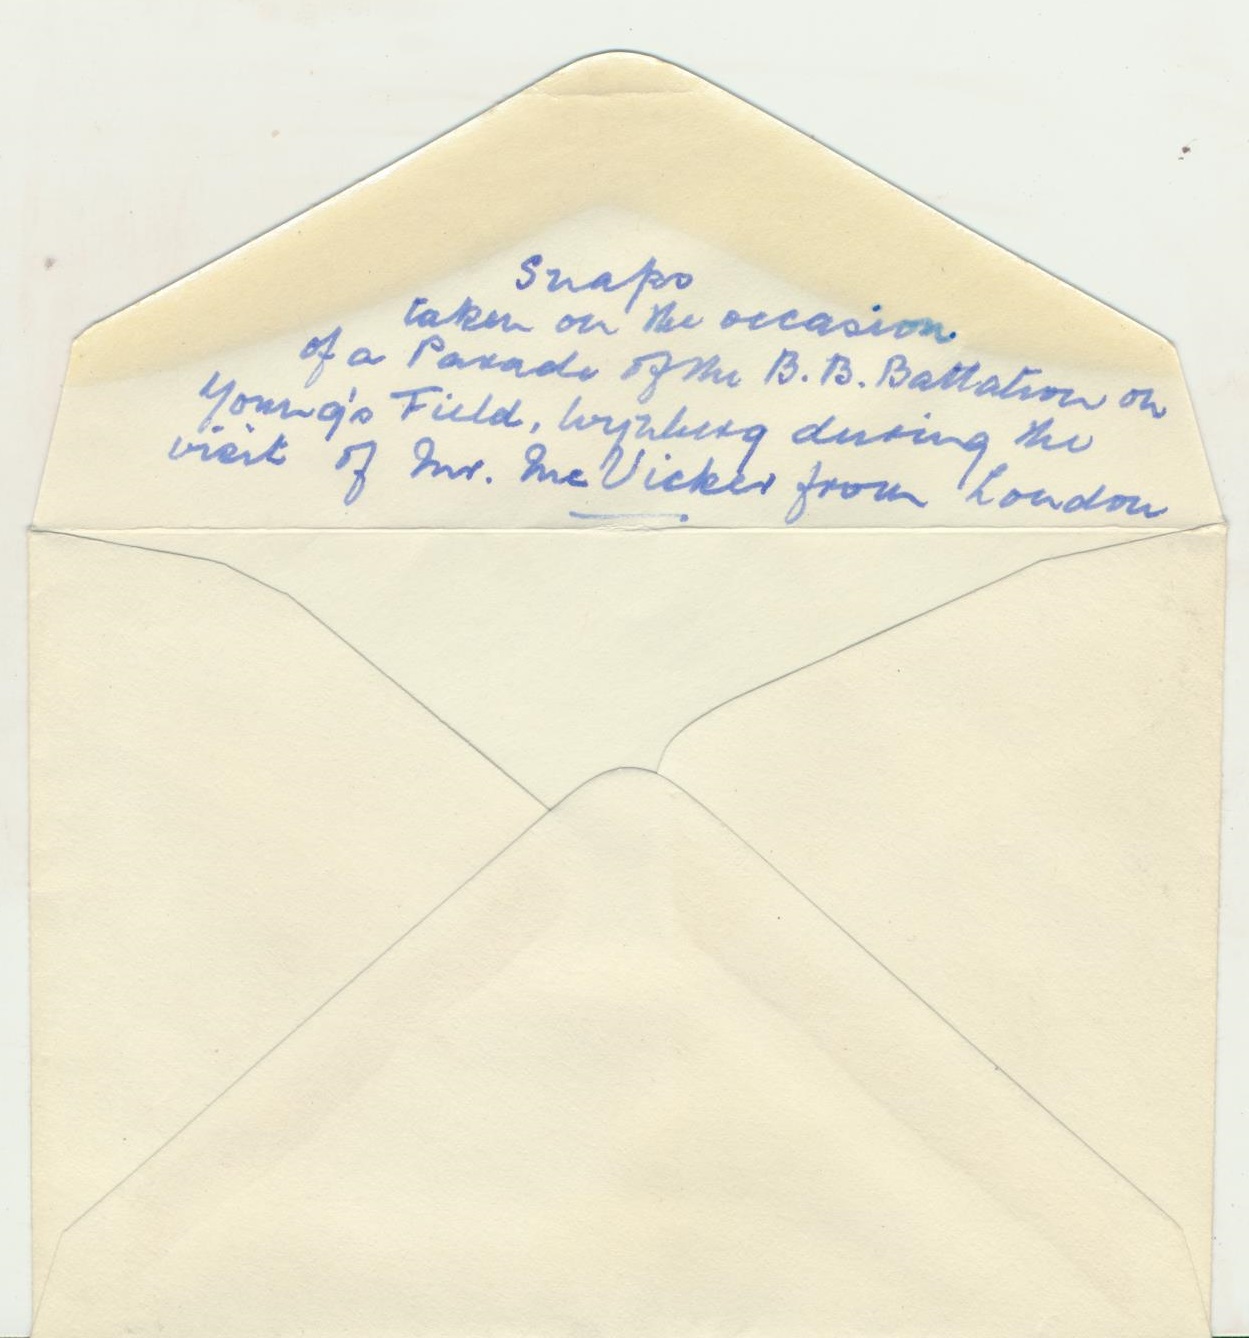 Snaps
taken on the occasion.
of a Parade of the B.B. Battalion on
Young's Field, Wynberg during the
visit of Mr. McVicker from London